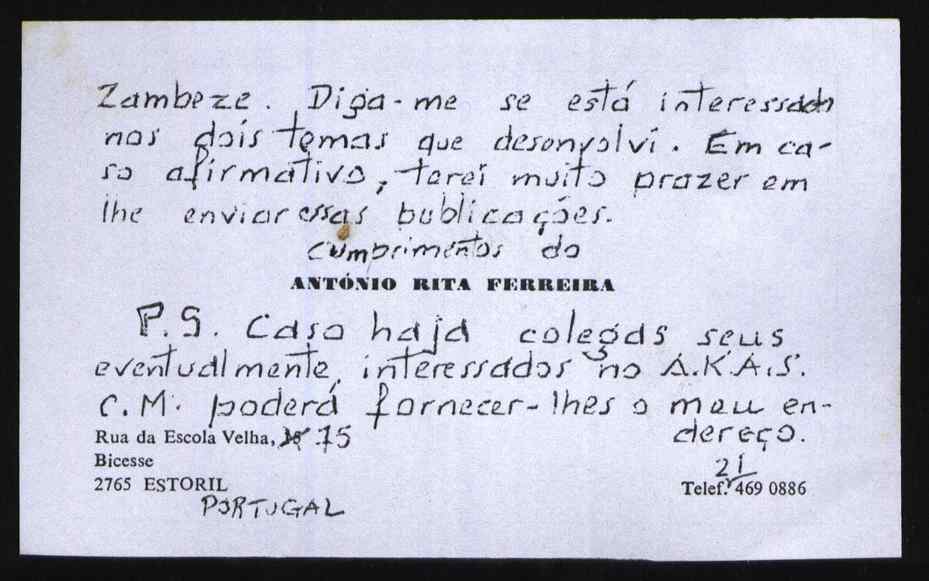 Zambeze. Diga-me se está interessado
nos dois temas que desenvolvi. Em ca-
so afirmativo, terei muito prazer em
lhe enviar essas publicações.
cumprimentos do
ANTÓNIO RITA FERREIRA
P.S. Caso haja colegas seus
eventualmente interessados no A.K.A.S.
C.M. poderá fornecer-lhes o meu en-
dereço.
Rua da Escola Velha, 75
Bicesse
21
2765 ESTORIL
Telef. 469 0886
PORTUGAL